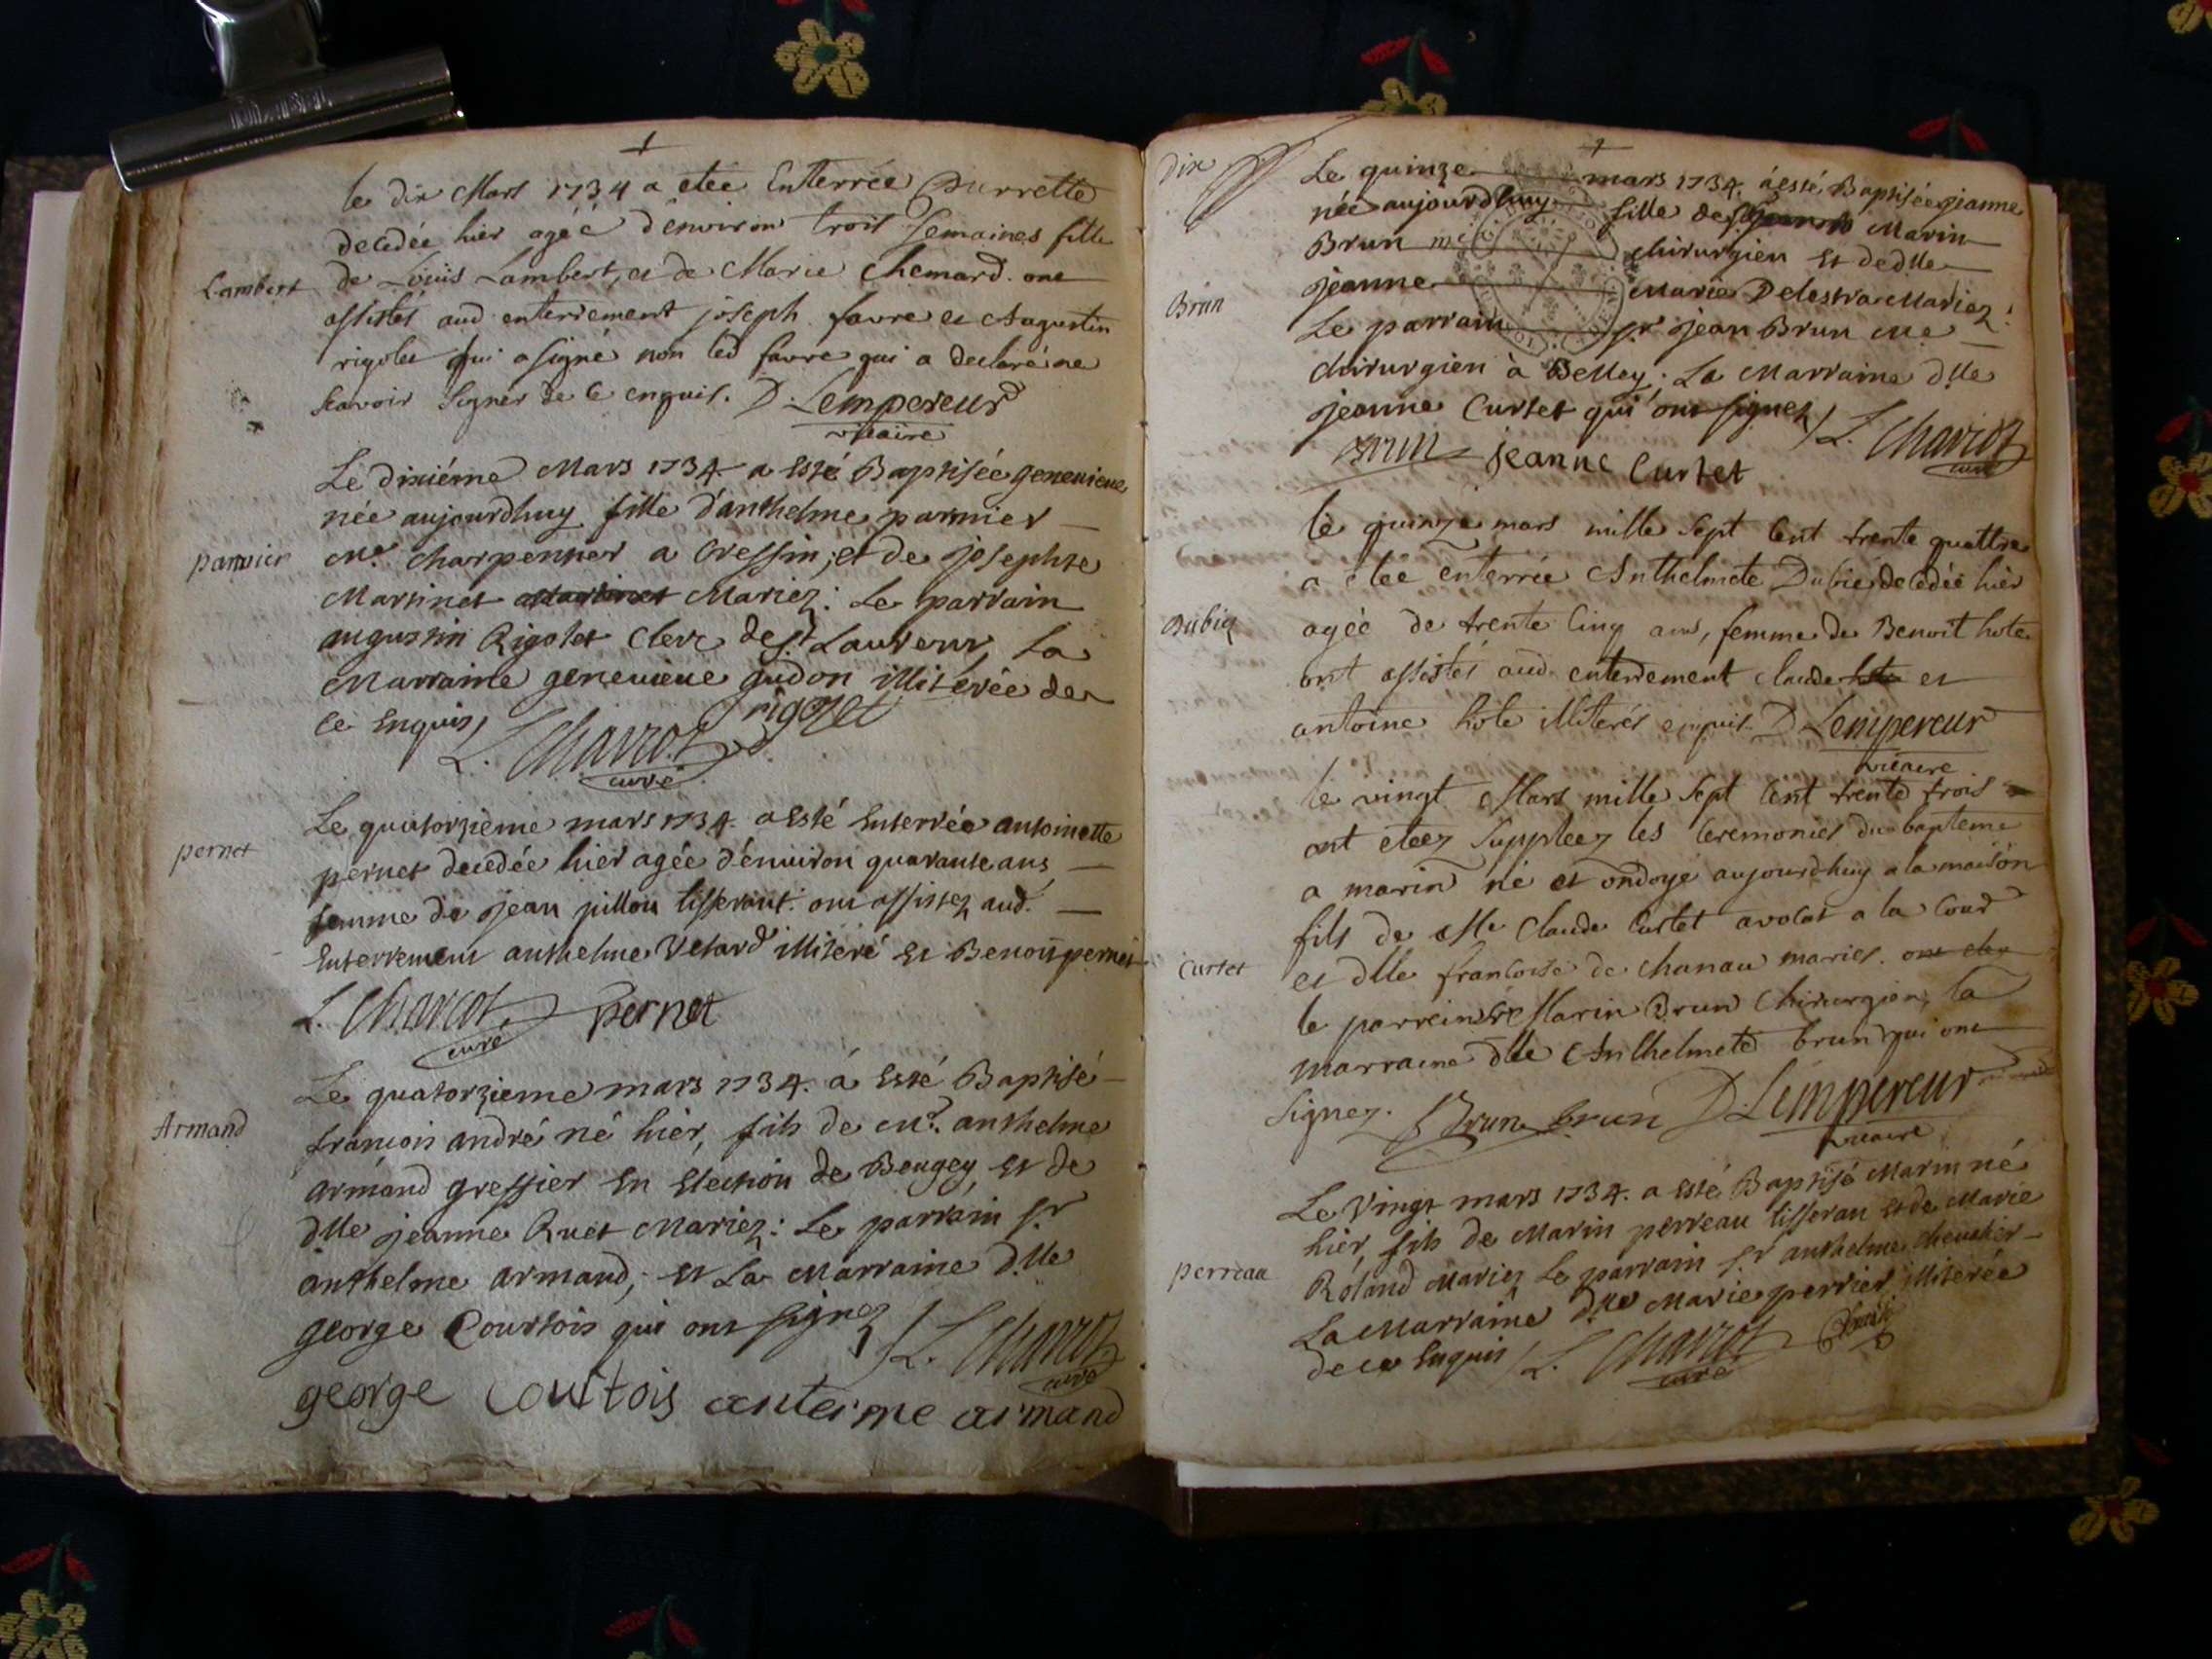 le dix Mars 1734 a etée Enterrée Purrette
decedée hier agéé d'environ trois Semaines fille
Lambert
de Loüis Lambert, et de Marie Chemard. ont
assistés aud enterrement joseph favre et Augustin
rigolet qui a signé non led favre qui a declaré ne
scavoir signer de ce enquis. D. Lempereur
vicaire
Le dixiéme Mars 1734 a Esté Baptisée genevieve
née aujourdhuy fille d'anthelme parmier
parmier
Me. Charpentier a Cressin; et de josephte
Martinet Mariez: Le parrain
augustin Rigolet Clerc de st. Laurent, La
Marraine genevieve gudon illiterée de
ce Enquis, L. Charcot rigolet
curé
Le quatorziéme mars 1734. a Esté Enterrée antoinette
pernet
pernet decedée hier agée d'environ quarante ans
femme de jean pillou tisserant. ont assistez aud.
Enterrement anthelme Vetard illiteré Et Benoit pernet
L. Charcot pernet
curé
Le quatorzieme mars 1734. á Esté Baptisé
Armand
francois andré né hier, fils de me. anthelme
armand greffier En Election de Beugey, Et de
dlle jeanne Ruet Mariez: Le parrain sr
anthelme armand; Et La Marraine dlle
george Courtois qui ont signez / L. Charcot
curé
george Courtois antelme armand
Dix
Le quinze mars 1734. á esté Baptisée jeanne
née aujourdhuy fille de sr Marin
Brun me chirurgien Et de dlle
Brun
jeanne Marie Delestra Mariez:
Le parrain sr jean Brun Me
chirurgien à Belley. La Marraine dlle
jeanne Curtet qui ont signez / L. Charcot
curé
Brun jeanne Curtet
le quinze mars mille sept cent trente quattre
a etée enterrée Anthelmete Dubie decedée hier
Dubiez
agéé de trente cinq ans, femme de Benoit hote
ont assistés aud enterrement claude hote et
antoine hote illiterés enquis. D Lempereur
vicaire
le vingt Mars mille sept cent trente trois
ont eteez suppleez les Ceremonies du bapteme
a marin né et ondoyé aujourdhuy a la maison
fils de Me Claude Curtet avocat a la Cour
Curtet
et dlle francoise de chanau mariés. ont etez
le parrein sr Marin Brun Chirurgien, la
marraine dlle Anthelmete brun qui ont
signez. Brun brun D. Lempereur
vicaire
Le Vingt mars 1734. a Esté Baptisé Marin né
hier, fils de Marin perreau tisseran Et de Marie
perreau
Roland Mariez Le parrain sr anthelme chevalier
La Marraine dlle Marie perrier illiterée
de ce Enquis / L. Charcot
curé